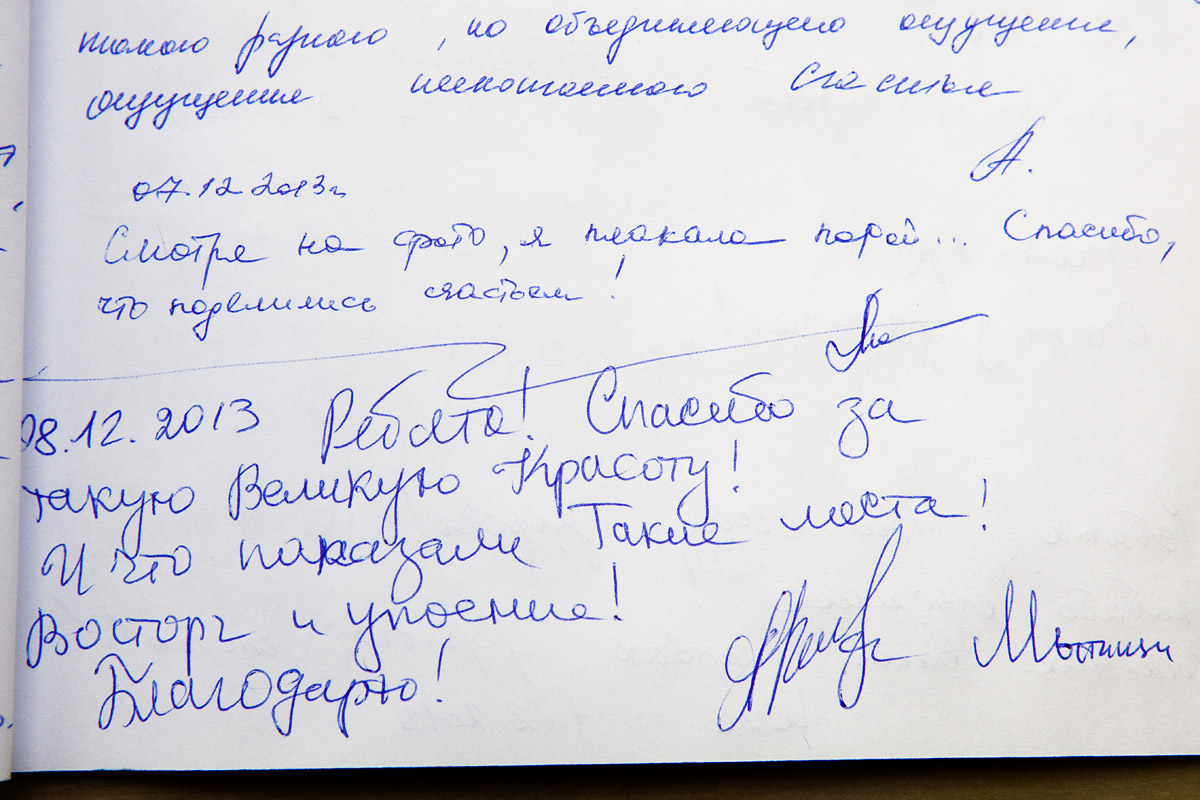 такого разного, но объединяющего ощущения,
ощущения нескончаемого счастья
А.
07.12 2013г.
Смотря на фото, я плакала порой... Спасибо,
что поделились счастьем!
08.12.2013 Ребята! Спасибо за
такую Великую Красоту!
И что показали Такие места!
Восторг и упоение!
Благодарю!
Мытищи